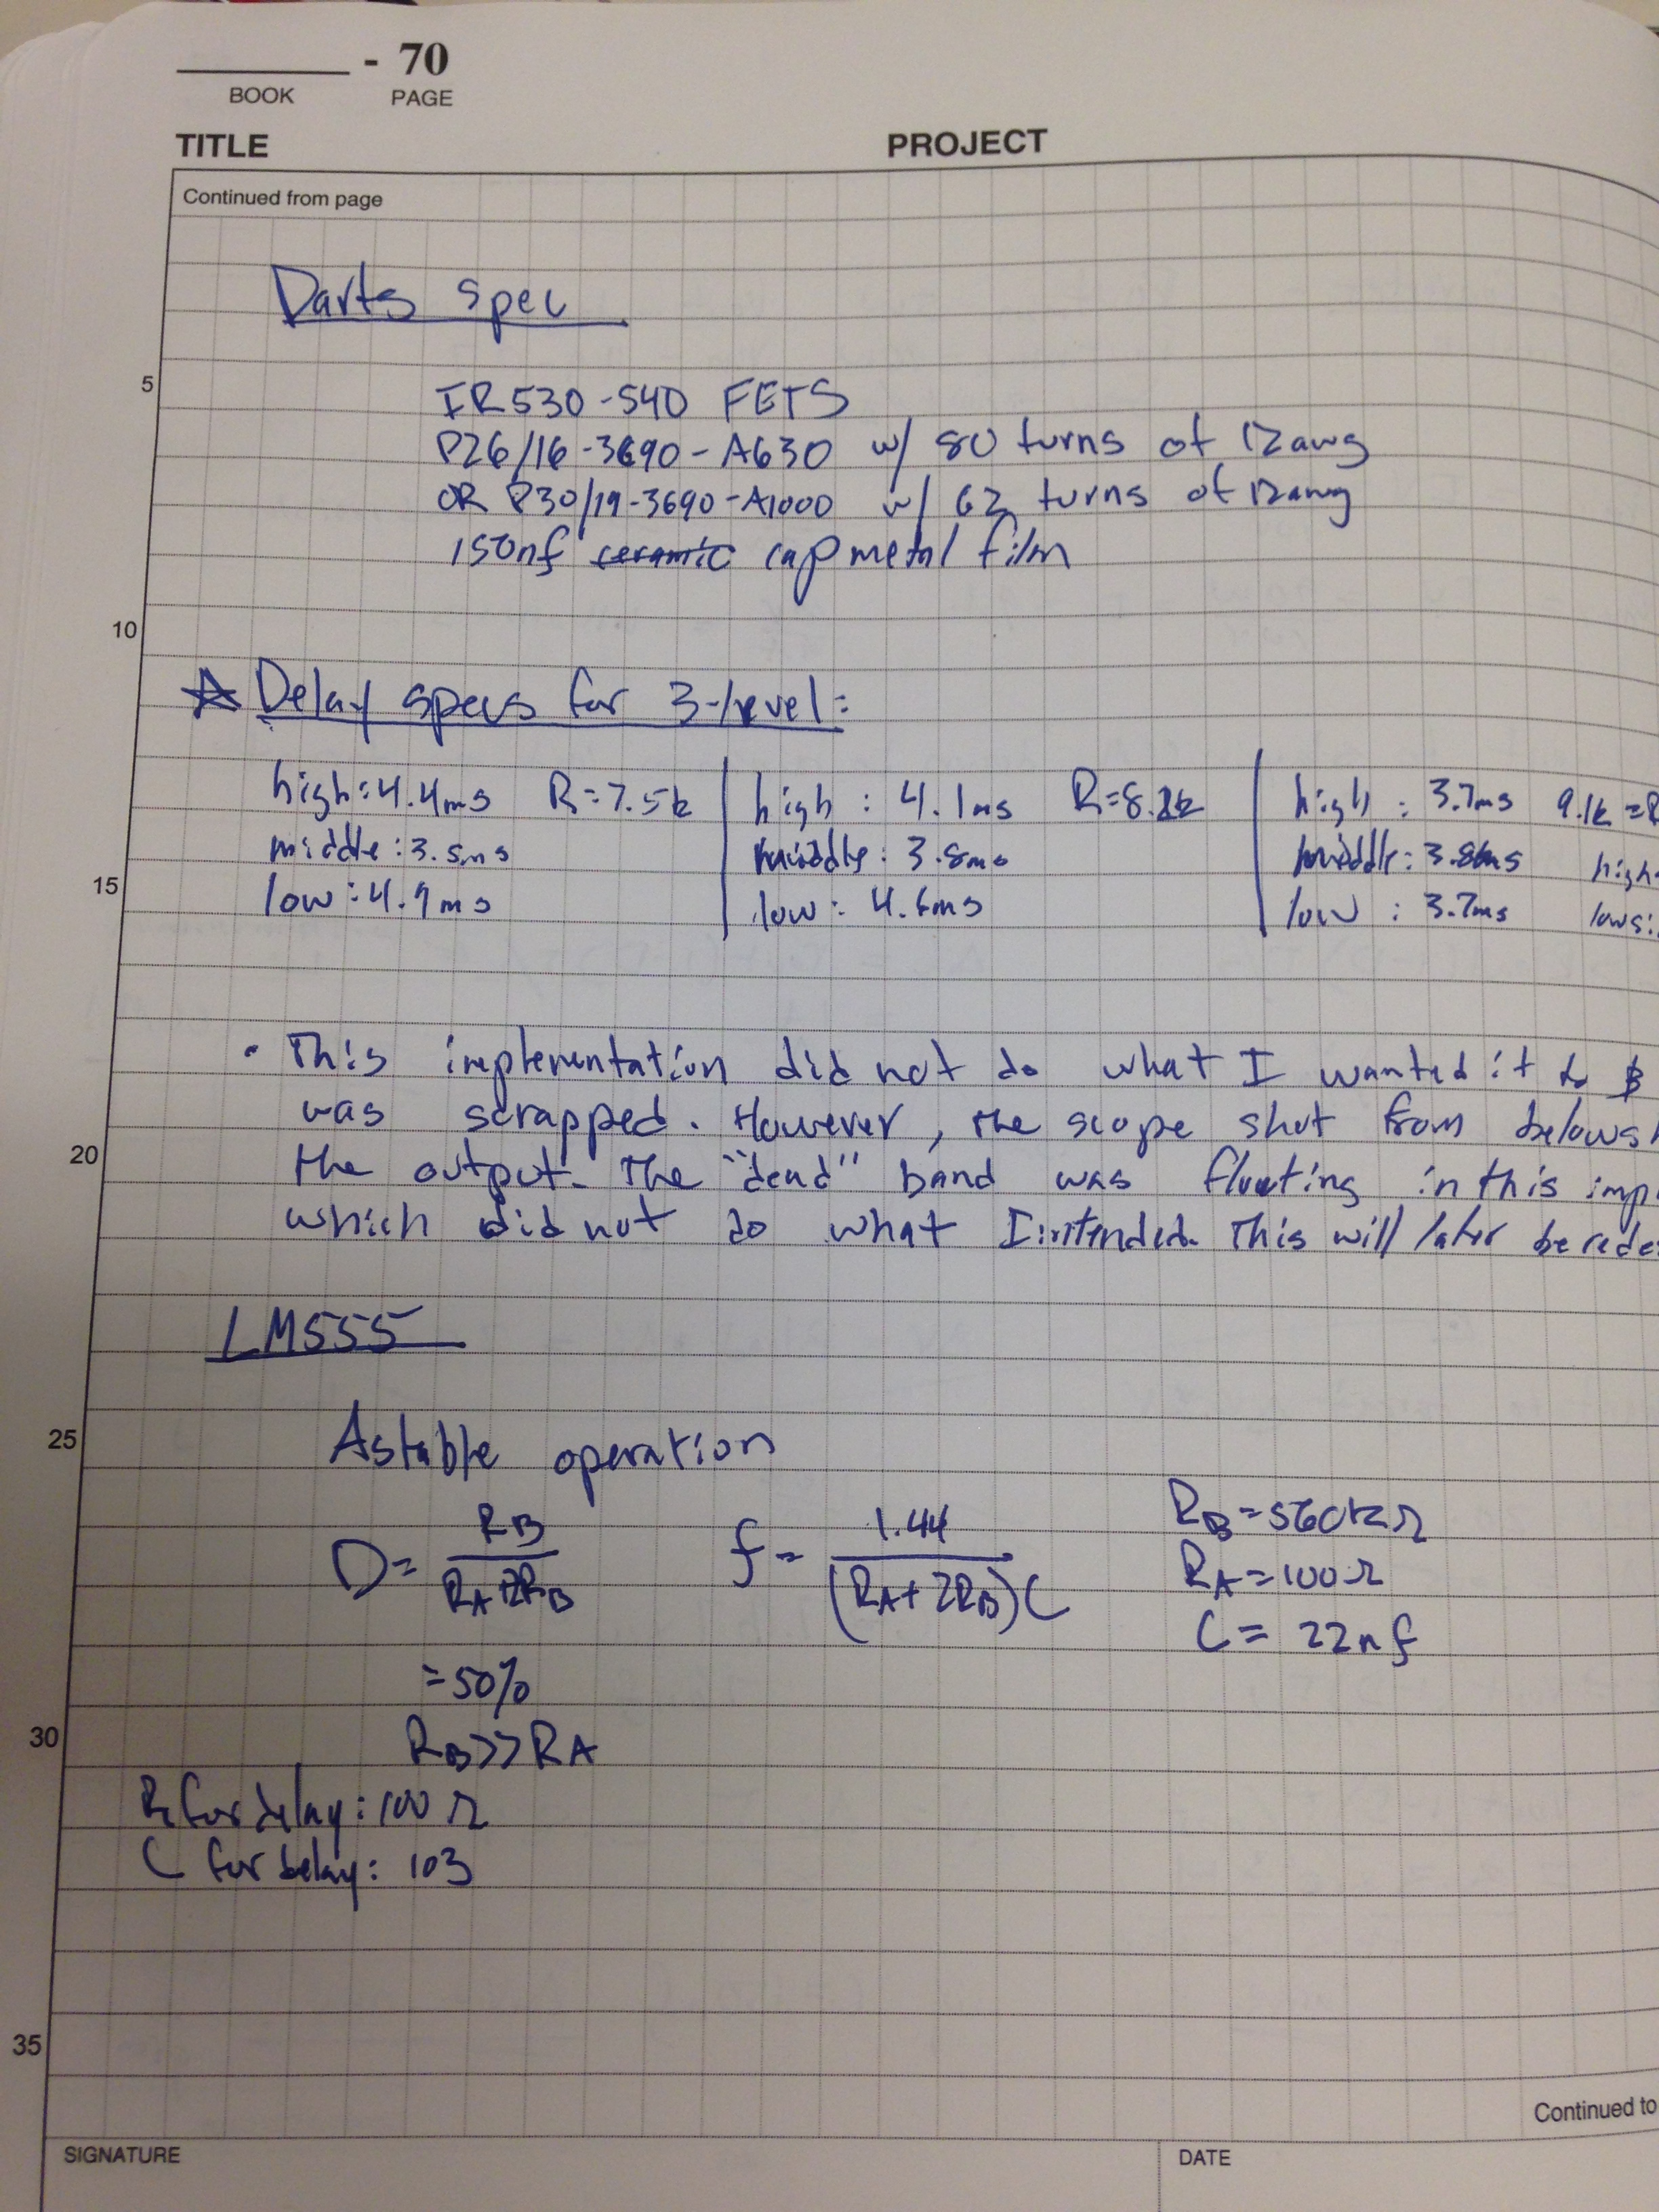 - 70
BOOK PAGE
TITLE PROJECT
Continued from page
Darts spec
5
IR530-540 FETS
P26/16-3690-A630 w/ 80 turns of 12awg
OR P30/19-3690-A1000 w/ 62 turns of 12awg
150nf ceramic cap metal film
10
☆ Delay specs for 3-level:
high: 4.4ms R=7.5k | high : 4.1ms R=8.2k | high : 3.7ms 9.1k = R
middle: 3.5ms | middle: 3.8ms | middle: 3.86ms high
15
low: 4.9ms | low: 4.6ms | low : 3.7ms lows:
• This implementation did not do what I wanted it to &
was scrapped. However, the scope shot from below sh
20
the output. The "dead" band was floating in this imp
which did not do what I intended. This will later be rede
LM555
25
Astable operation
D = RB / (RA+2RB) f = 1.44 / (RA+2RB)C RB = 560kΩ
RA = 100Ω
C = 22nf
=50%
30
RB>>RA
R for delay: 100 Ω
C for delay: 103
35
Continued to
SIGNATURE DATE